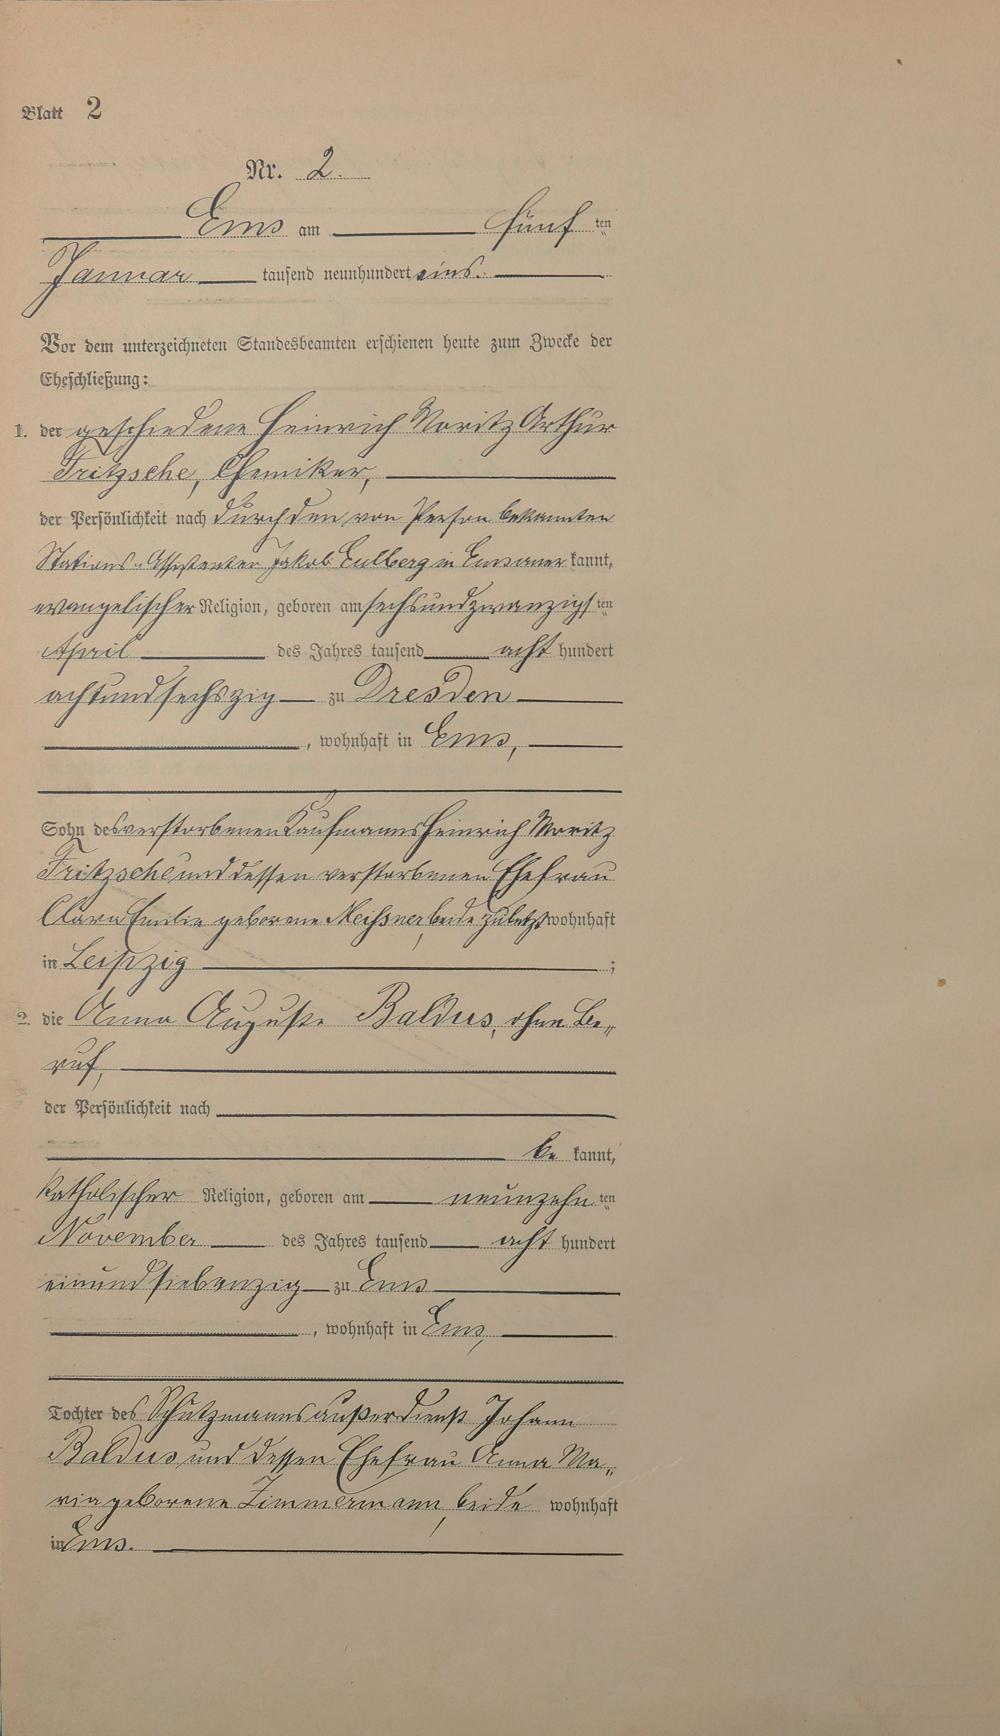 Blatt 2
Nr. 2.
Ems am fünften
Januar tausend neunhundert eins.
Vor dem unterzeichneten Standesbeamten erschienen heute zum Zwecke der
Eheschließung:
1. der geschiedene Heinrich Moritz Arthur
Fritzsche, Chemiker,
der Persönlichkeit nach durch den von Person bekannten
Stations-Assistenten Jakob Eulberg in Ems anerkannt,
evangelischer Religion, geboren am sechsundzwanzigsten
April des Jahres tausend acht hundert
achtundsechszig zu Dresden
, wohnhaft in Ems,
Sohn des verstorbenen Kaufmanns Heinrich Moritz
Fritzsche und dessen verstorbenen Ehefrau
Clara Emilie geborene Meißner, beide zuletzt wohnhaft
in Leipzig ;
2. die Anna Auguste Baldus, ohne Be„
ruf,
der Persönlichkeit nach
be kannt,
katholischer Religion, geboren am neunzehnten
November des Jahres tausend acht hundert
einundsiebenzig zu Ems
, wohnhaft in Ems,
Tochter des Schutzmanns außer Dienst Johann
Baldus und dessen Ehefrau Anna Ma„
ria geborene Zimmermann, beide wohnhaft
in Ems.